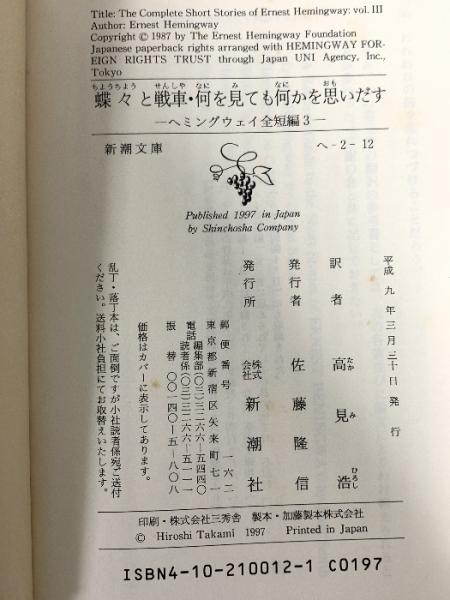 Title: The Complete Short Stories of Ernest Hemingway: vol. III
Author: Ernest Hemingway
Copyright © 1987 by The Ernest Hemingway Foundation
Japanese paperback rights arranged with HEMINGWAY FOR-
EIGN RIGHTS TRUST through Japan UNI Agency, Inc.,
Tokyo
ちょうちょう せんしゃ なに み なに おも
蝶々と戦車・何を見ても何かを思いだす
―ヘミングウェイ全短編3―
新潮文庫 へ-2-12
Published 1997 in Japan
by Shinchosha Company
平成九年三月三十日発行
訳者 高見浩
たか み ひろし
発行者 佐藤隆信
発行所 株式会社 新潮社
郵便番号 一六二
東京都新宿区矢来町七一
電話 編集部(〇三)三二六六―五四四〇
読者係(〇三)三二六六―五一一一
振替 〇〇一四〇―五―八〇八
価格はカバーに表示してあります。
乱丁・落丁本は、ご面倒ですが小社読者係宛ご送付
ください。送料小社負担にてお取替えいたします。
印刷・株式会社三秀舎 製本・加藤製本株式会社
© Hiroshi Takami 1997 Printed in Japan
ISBN4-10-210012-1 C0197